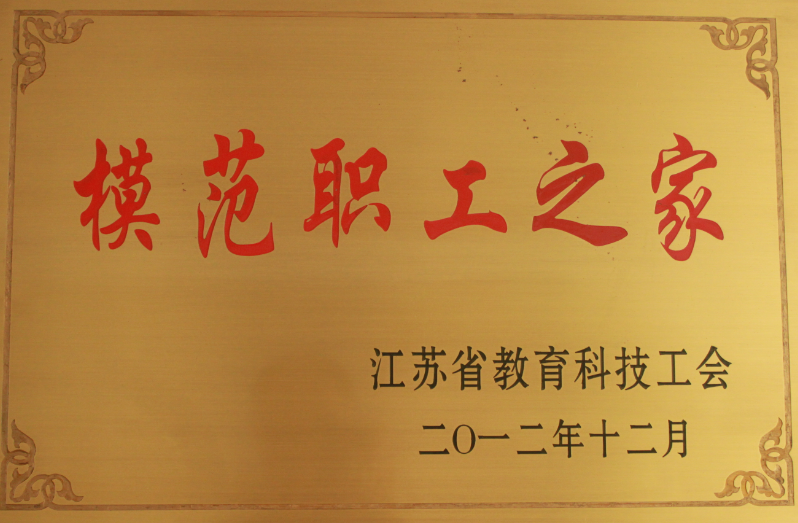 模范职工之家
江苏省教育科技工会
二〇一二年十二月